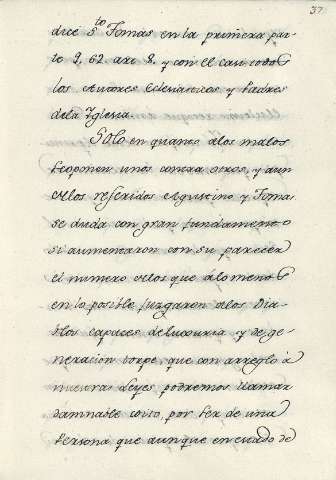 37
dice S.to Tomas en la primera par-
te q. 62. art 8. y con el casi todos
los Autores Eclesiasticos y Padres
de la Yglesia.
Solo en quanto a los malos
se oponen unos contra otros, y aun
a los referidos Agustino y Tomas
se duda con gran fundamento
si aumentaron con su parecer
el numero a los que a lo menos
en lo posible juzgaron a los Dia-
blos capaces de luxuria y de ge-
neracion torpe, que con arreglo à
nuestras Leyes podremos llamar
damnable coito, por ser de una
Persona que aunque en estado de